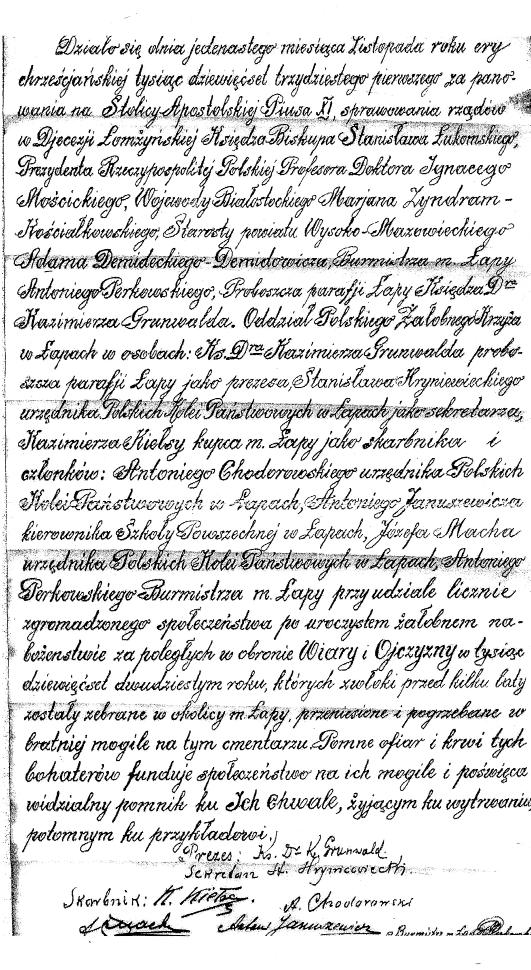 Działo się dnia jedenastego miesiąca Listopada roku ery
chrześcjańskiej tysiąc dziewięćset trzydziestego pierwszego za pano-
wania na Stolicy Apostolskiej Piusa XI, sprawowania rządów
w Djecezji Łomżyńskiej Księdza Biskupa Stanisława Łukomskiego,
Prezydenta Rzeczypospolitej Polskiej Profesora Doktora Ignacego
Mościckiego, Wojewody Białostockiego Marjana Zyndram-
Kościałkowskiego, Starosty powiatu Wysoko-Mazowieckiego
Adama Demideckiego-Demidowicza, Burmistrza m. Łapy
Antoniego Perkowskiego, Proboszcza parafji Łapy Księdza Dra
Kazimierza Grunwalda. Oddział Polskiego Żałobnego Krzyża
w Łapach w osobach: Ks. Dra Kazimierza Grunwalda probo-
szcza parafji Łapy jako prezesa, Stanisława Hryniewieckiego
urzędnika Polskich Kolei Państwowych w Łapach jako sekretarza,
Kazimierza Kielsy kupca m. Łapy jako skarbnika i
członków: Antoniego Chodorowskiego urzędnika Polskich
Kolei Państwowych w Łapach, Antoniego Januszewicza
kierownika Szkoły Powszechnej w Łapach, Józefa Macha
urzędnika Polskich Kolei Państwowych w Łapach, Antoniego
Perkowskiego Burmistrza m. Łapy przy udziale licznie
zgromadzonego społeczeństwa po uroczystem żałobnem na-
bożeństwie za poległych w obronie Wiary i Ojczyzny w tysiąc
dziewięćset dwudziestym roku, których zwłoki przed kilku laty
zostały zebrane w okolicy m. Łapy, przeniesione i pogrzebane w
bratniej mogile na tym cmentarzu. Pomne ofiar i krwi tych
bohaterów funduje społeczeństwo na ich mogile i poświęca
widzialny pomnik ku Ich Chwale, żyjącym ku wytrwaniu
potomnym ku przykładowi.
Prezes: Ks. Dr K. Grunwald
Sekretarz St. Hryniewiecki.
Skarbnik: K. Kielsa.
A. Chodorowski
Januszewicz
Burmistrz m. Łapy